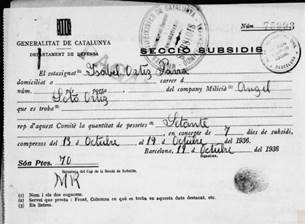 Núm.
GENERALITAT DE CATALUNYA
DEPARTAMENT DE DEFENSA
SECCIÓ SUBSIDIS
El estasignat Isabel Ortiz Parra
domiciliat a carrer d
núm. pis porta company Milicià Angel
Soto Ortiz
que es troba
rep d'aquest Comitè la quantitat de pessetes Setanta
en concepte de 7 dies de subsidi,
compresos del 13 Octubre al 19 Octubre de 1936
Barcelona, 19 Octubre de 1936
Són Ptes. 70
Signatura,
Signatura del Cap de la Secció de Subsidis,
MR
(1) Nom i els dos cognoms.
(2) Servei que presta : Front, Columna en què es troba en aquesta data destacat, etc.
(3) Els lletres.